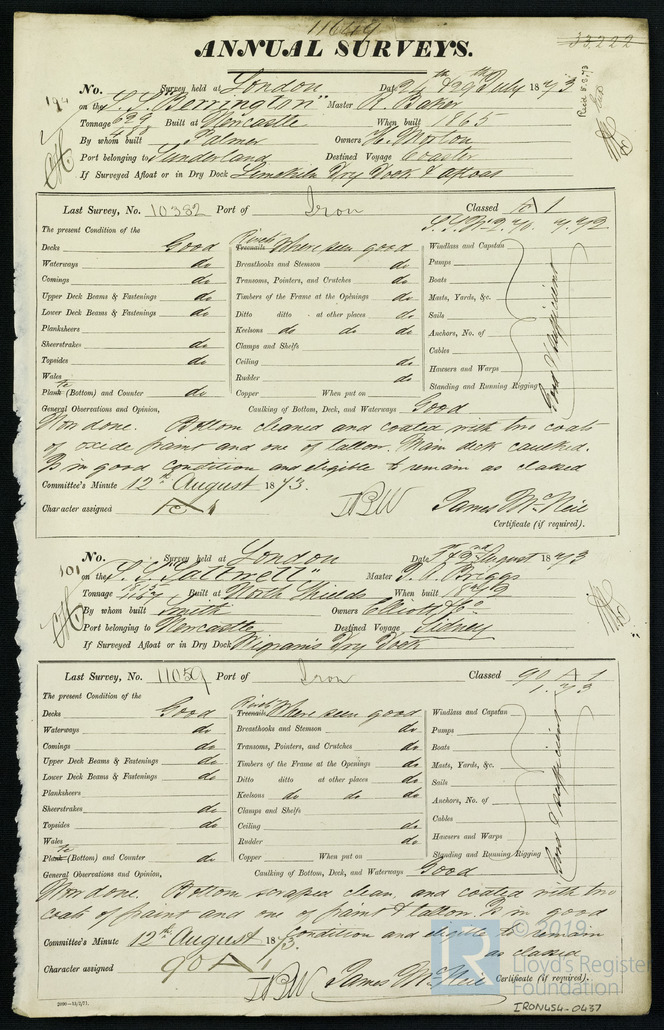 11649
33,222
ANNUAL SURVEYS.
Rec'd 5.8.73
No. Survey held at London Date 24th & 29th July 1873
on the S.S. "Berrington" Master R. Baker
Tonnage 629 Built at Newcastle When built 1865
480
By whom built Palmer Owners H. Morton
Port belonging to Sunderland Destined Voyage Coaster
If Surveyed Afloat or in Dry Dock Limekiln Dry Dock & afloat
Last Survey, No. 10382 Port of Iron Classed A 1
The present Condition of the
Decks Good Rivets Treenails Where seen good Windlass and Capstan
Waterways do Breasthooks and Stemson do Pumps
Comings do Transoms, Pointers, and Crutches do Boats
Upper Deck Beams & Fastenings do Timbers of the Frame at the Openings do Masts, Yards, &c.
Lower Deck Beams & Fastenings do Ditto ditto at other places do Sails
Planksheers Keelsons do do do Anchors, No. of
Sheerstrakes do Clamps and Shelfs Cables
Topsides do Ceiling do Hawsers and Warps
Wales Rudder do Standing and Running Rigging
Plank (Bottom) and Counter do Copper When put on
Good & Sufficient
General Observations and Opinion, Caulking of Bottom, Deck, and Waterways Good
Now done. Bottom cleaned and coated with two coats
of oxide paint and one of tallow. Main deck caulked.
Is in good condition and eligible to remain as classed
Committee's Minute 12th August 1873.
Character assigned A 1 James McNeil
Certificate (if required).
101
No. Survey held at London Date 1st & 2nd August 1873
on the S.S. Master Briggs
Tonnage Built at North Shields When built 1872
By whom built Smith Owners Elliott & Co
Port belonging to Newcastle Destined Voyage Sidney
If Surveyed Afloat or in Dry Dock Wigram's Dry Dock
Last Survey, No. 11059 Port of Iron Classed 90 A 1
1.73
The present Condition of the
Decks Good Rivets Treenails Where seen good Windlass and Capstan
Waterways do Breasthooks and Stemson do Pumps
Comings do Transoms, Pointers, and Crutches do Boats
Upper Deck Beams & Fastenings do Timbers of the Frame at the Openings do Masts, Yards, &c.
Lower Deck Beams & Fastenings do Ditto ditto at other places do Sails
Planksheers Keelsons do do do Anchors, No. of
Sheerstrakes do Clamps and Shelfs Cables
Topsides do Ceiling do Hawsers and Warps
Wales Rudder do Standing and Running Rigging
Plank (Bottom) and Counter do Copper When put on
Good & Sufficient
General Observations and Opinion, Caulking of Bottom, Deck, and Waterways Good
Now done. Bottom scraped clean and coated with two
coats of paint and one of paint & tallow. Is in good
condition and eligible to remain
as classed
Committee's Minute 12th August 1873.
Character assigned 90 A 1 James McNeil Certificate (if required).
2000—11/2/71.
© 2019
LR
Lloyd's Register
Foundation
IRON454-0437